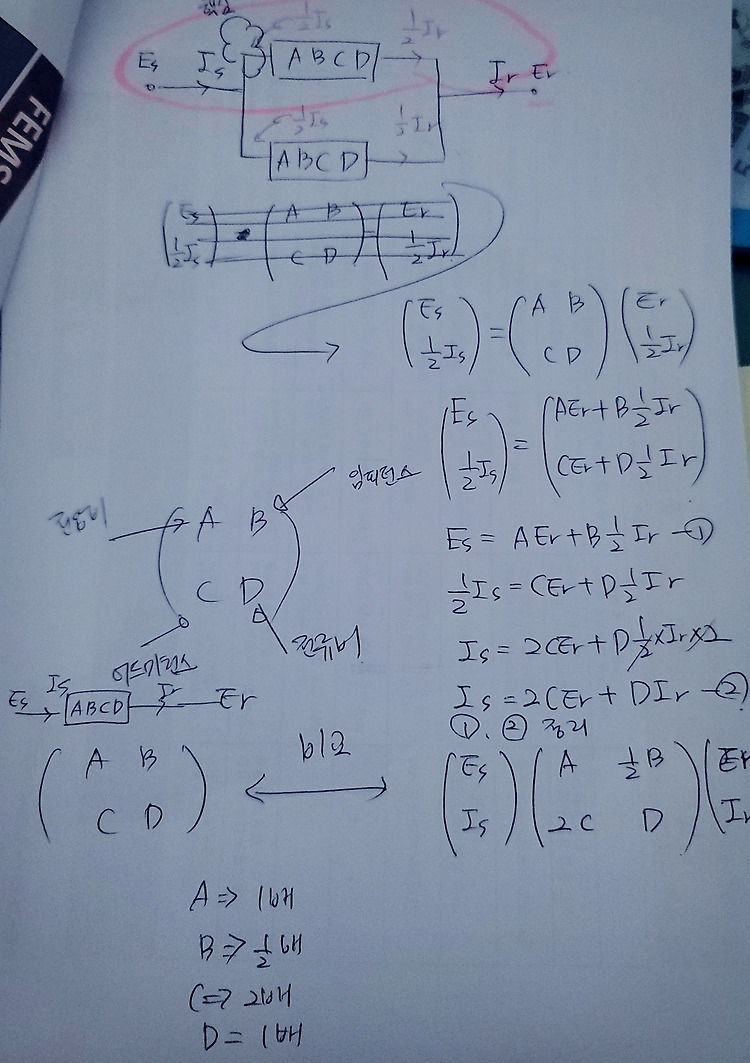 FEMS
½Is ½Ir
Es Is A B C D Ir Er
½Is ½Ir
A B C D
(Es ½Is) = (A B C D) (Er ½Ir)
(Es ½Is) = (A B C D) (Er ½Ir)
(Es ½Is) = (AEr+B½Ir CEr+D½Ir)
임피던스
전압비 A B
C D
어드미턴스 전류비
Es = AEr+B½Ir -①
½Is = CEr+D½Ir
Is = 2CEr+D½×Ir×2
Is = 2CEr+DIr -②
①, ② 정리
Es Is ABCD Ir Er
(A B C D) 비교 (Es Is) (A ½B 2C D) (Er Ir
A => 1배
B => ½배
C => 2배
D = 1배